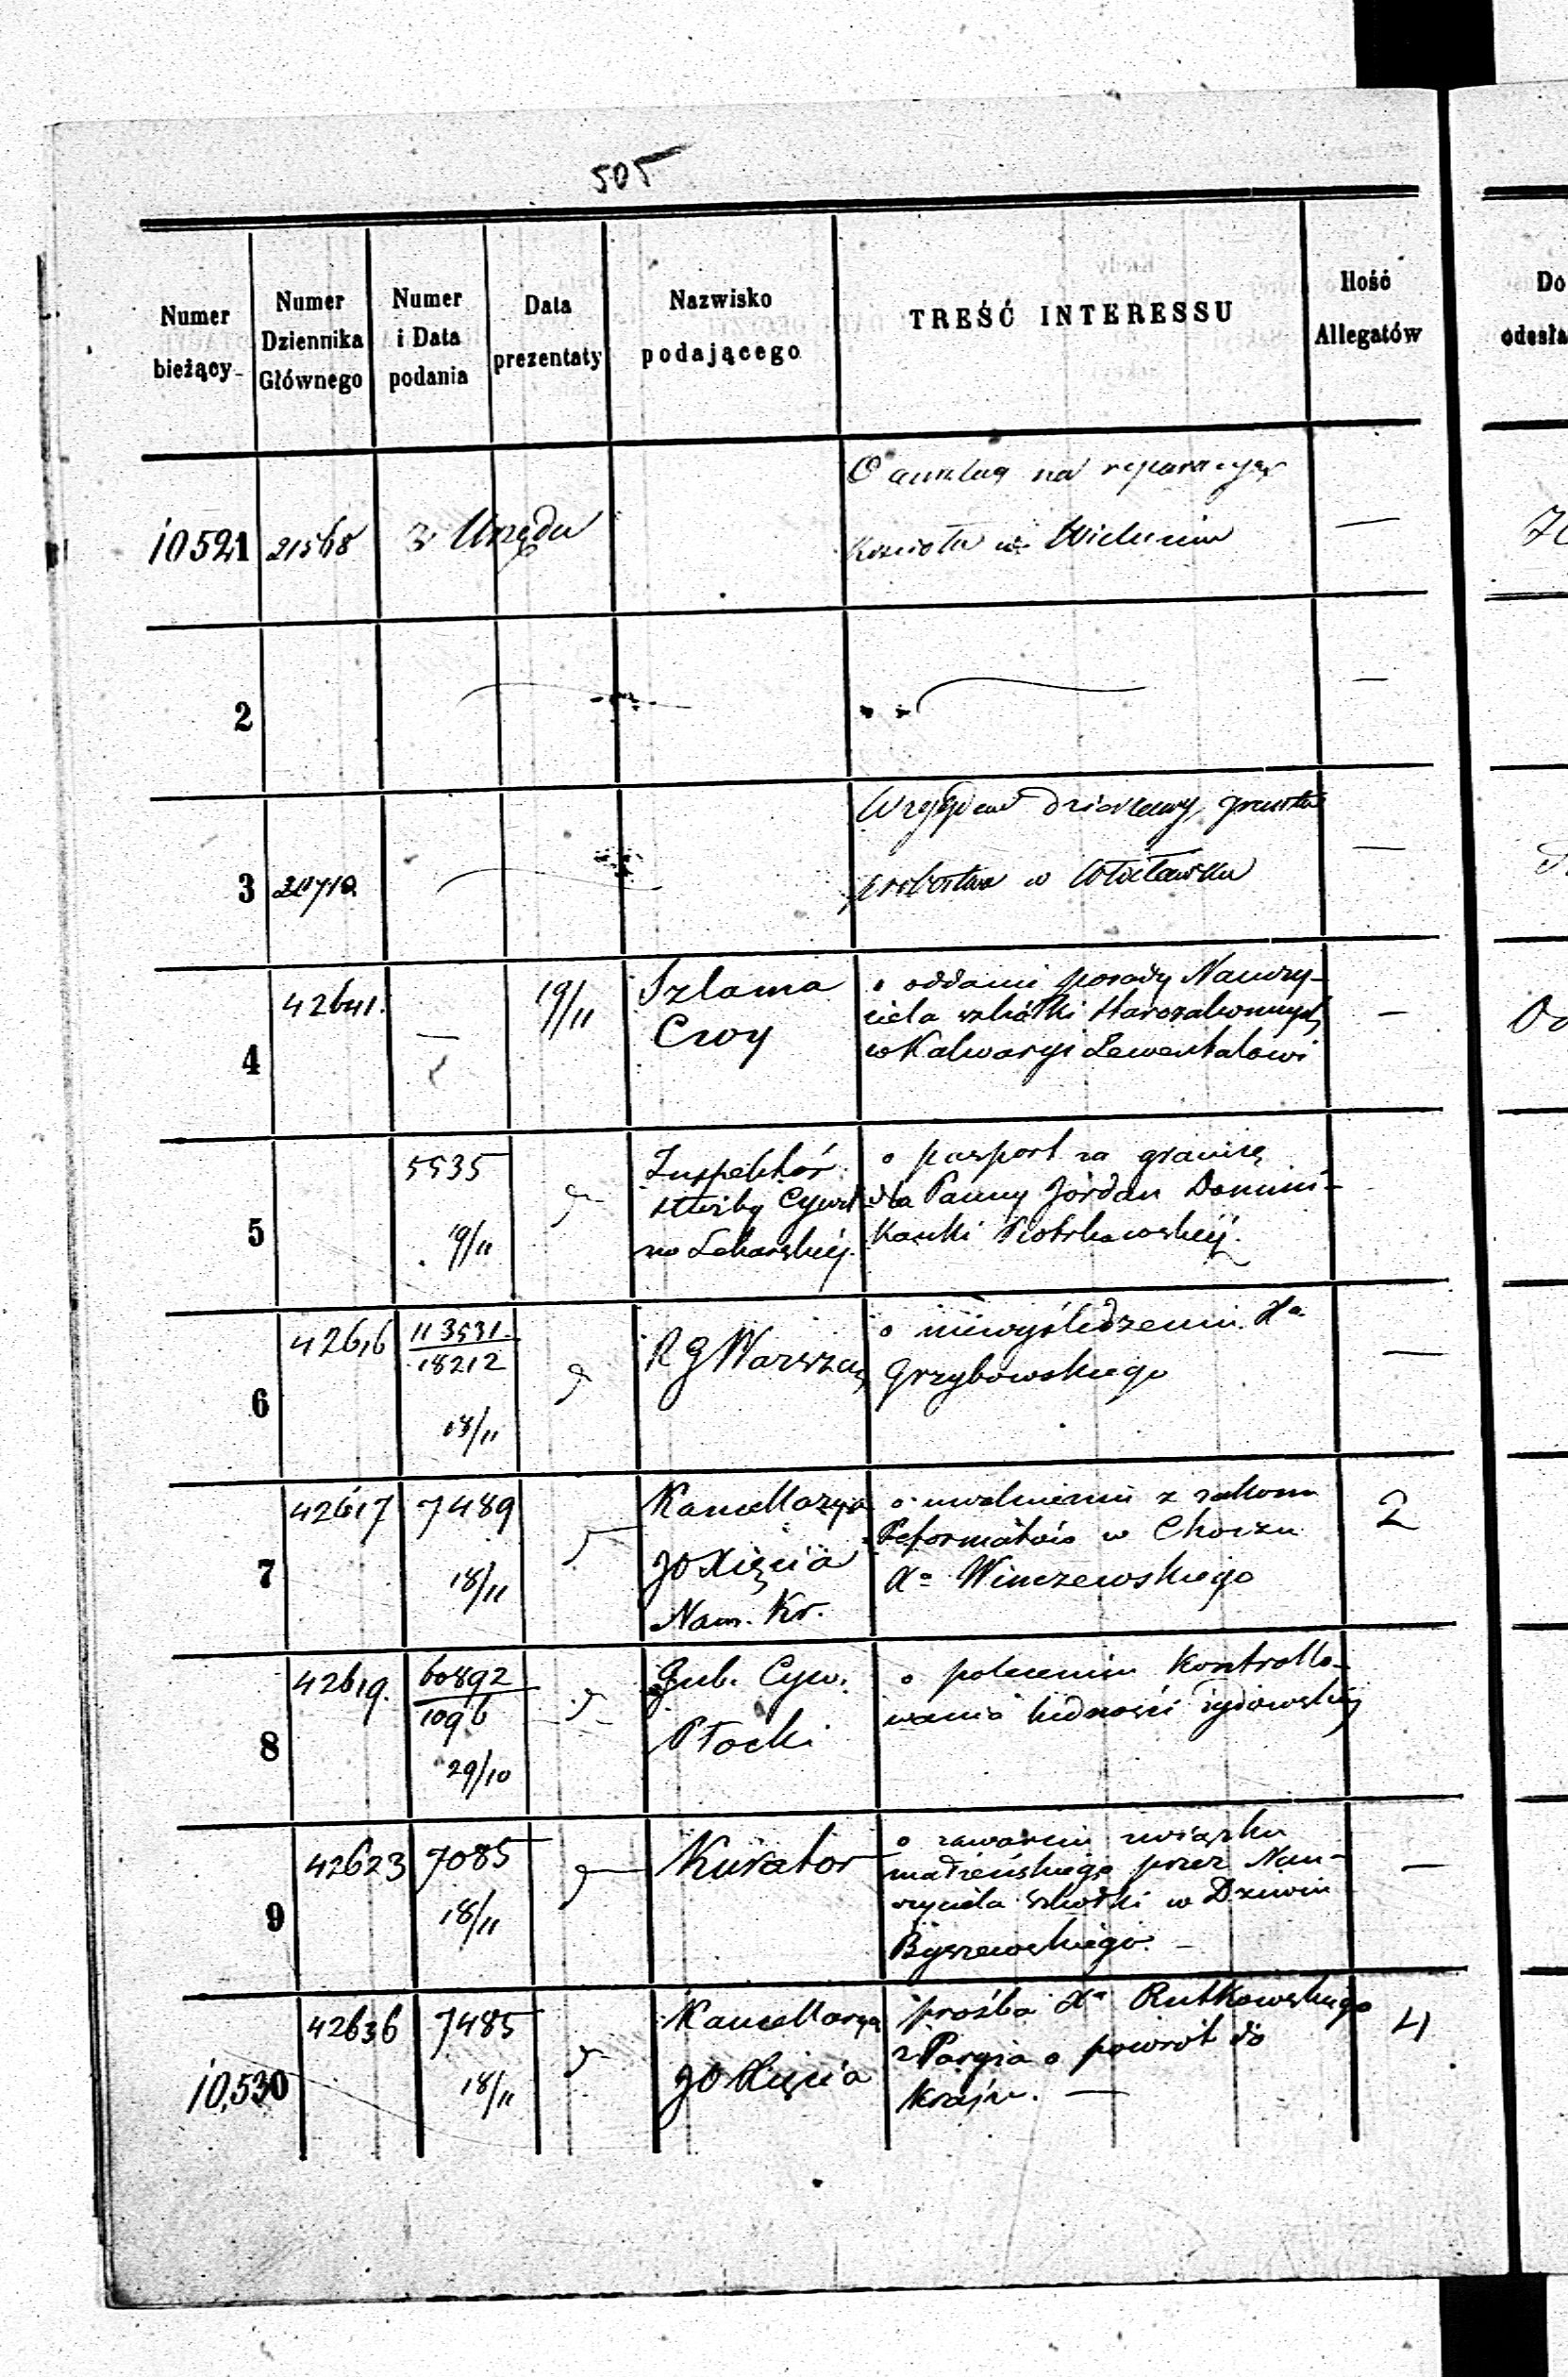 505
Numer bieżący
Numer Dziennika Głównego
Numer i Data podania
Data prezentaty
Nazwisko podającego
TREŚĆ INTERESSU
Ilość Allegatów
Do
odesła
10521 21568 z Urzędu
na reparacyę
Kościoła w Wieluniu
—
2
—
3 20710
dzierżawy gruntu
probostwa w Włocławku
—
4 42641. — 19/11
Szlama
Croy
o oddanie posady Nauczy-
ciela szkółki Starozakonnych
w Kalwaryi Lewentalowi
—
5 5535
19/11
Inspektór
służby Cywil
no Lekarskiéj
o paszport za granicę
dla Panny Jordan Domini-
kanki Piotrkowskiéj.
6 42616 113531
18212
18/11
R G Warszaw
o niewyśledzeniu Xa
Grzybowskiego
—
7 42617 7489
18/11
Kancellarya
JO Xięcia
Nam. Kr.
o uwolnieniu z zakonu
Reformatów w Choczu
Xa Winczewskiego
2
8 42619. 60892
1096
29/10
Gub. Cyw.
Płocki
o poleceniu kontrollo-
wania ludności żydowskiéj
9 42623 7085
18/11
Kurator
o zawarciu związku
małżeńskiego przez Nau-
czyciela szkółki w
Byszewskiego. —
—
10,530 42636 7485
18/11
Kancellarya
JO Xięcia
prośba Xa Rutkowskiego
z Paryża o powrót do
Kraju. —
4